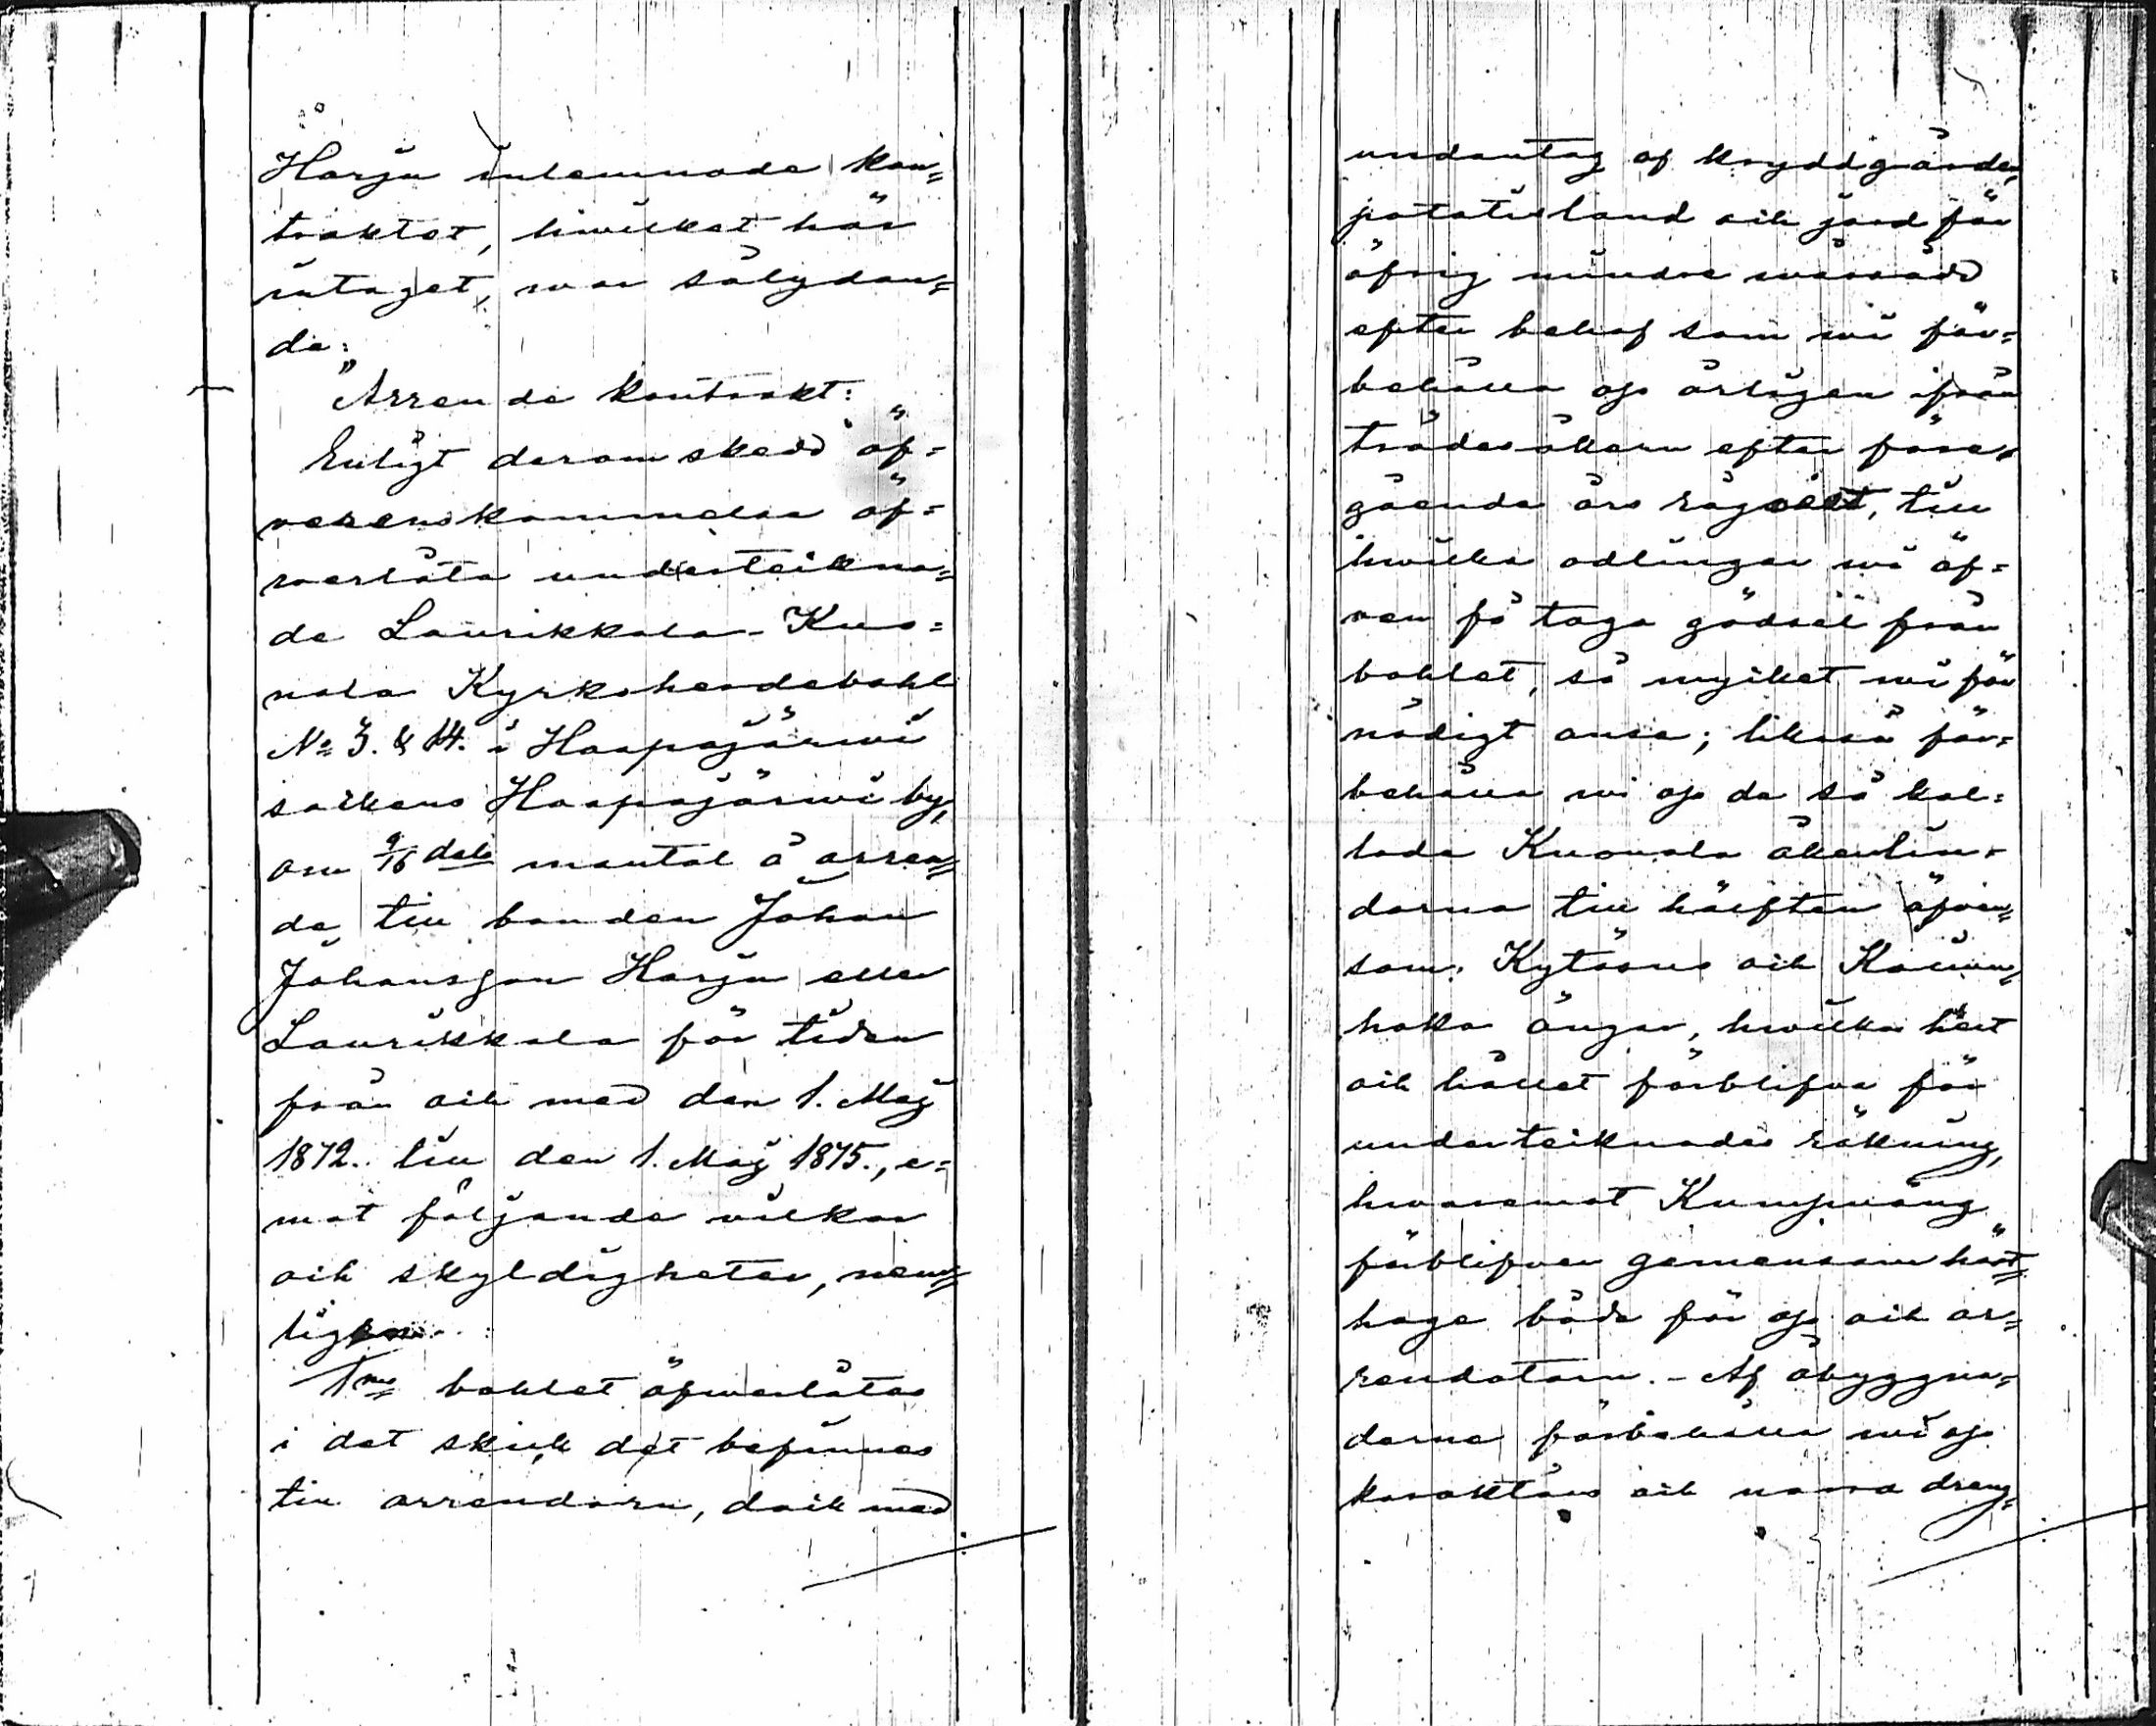 Harju inlemnade kon=
traktet, hwilket här
intaget, war sålydan=
de:
"Arrende kontrakt:
Enligt derom skedd öf=
verenskommelse öf=
werlåta underteckna=
de Laurikkala-Kuo=
nala Kyrkoherdebohl
No 3. & 14. i Haapajärwi
sockens Haapajärwi by,
om 9/16 dels mantal å arren=
de, till bonden Johan
Johansson Harju eller
Laurikkala för tiden
från och med den 1. Maj
1872. till den 1. Maj 1875., e=
mot följande vilkor
och skyldigheter, nem=
ligen:
1mo bohlet öfwerlåtes
i det skick det befinnes
till arrendorn, dock med
undantag af kryddgården,
potatisland och jord för
öfrig mindre
efter behof som wi för=
behålla oss årligen ifrån
trädesåkern efter före=
gående års rågsäd, till
hwilka odlingar wi äf=
ven få taga gödsel från
bohlet, så mycket wi för
nödigt anse; likaså för=
behålla wi oss de så kal=
lade Kuonala åkerlin=
dorna till hälften äfven=
som Kytösuo och
haka ängar, hwilka helt
och hållet förblifva för
undertecknades räkning,
hwaremot Kumpuäng
förblifver gemensam häst=
hage både för oss och ar=
rendatorn. - Af åbyggna=
derna förbehålla wi oss
karaktärs och norra dreng=